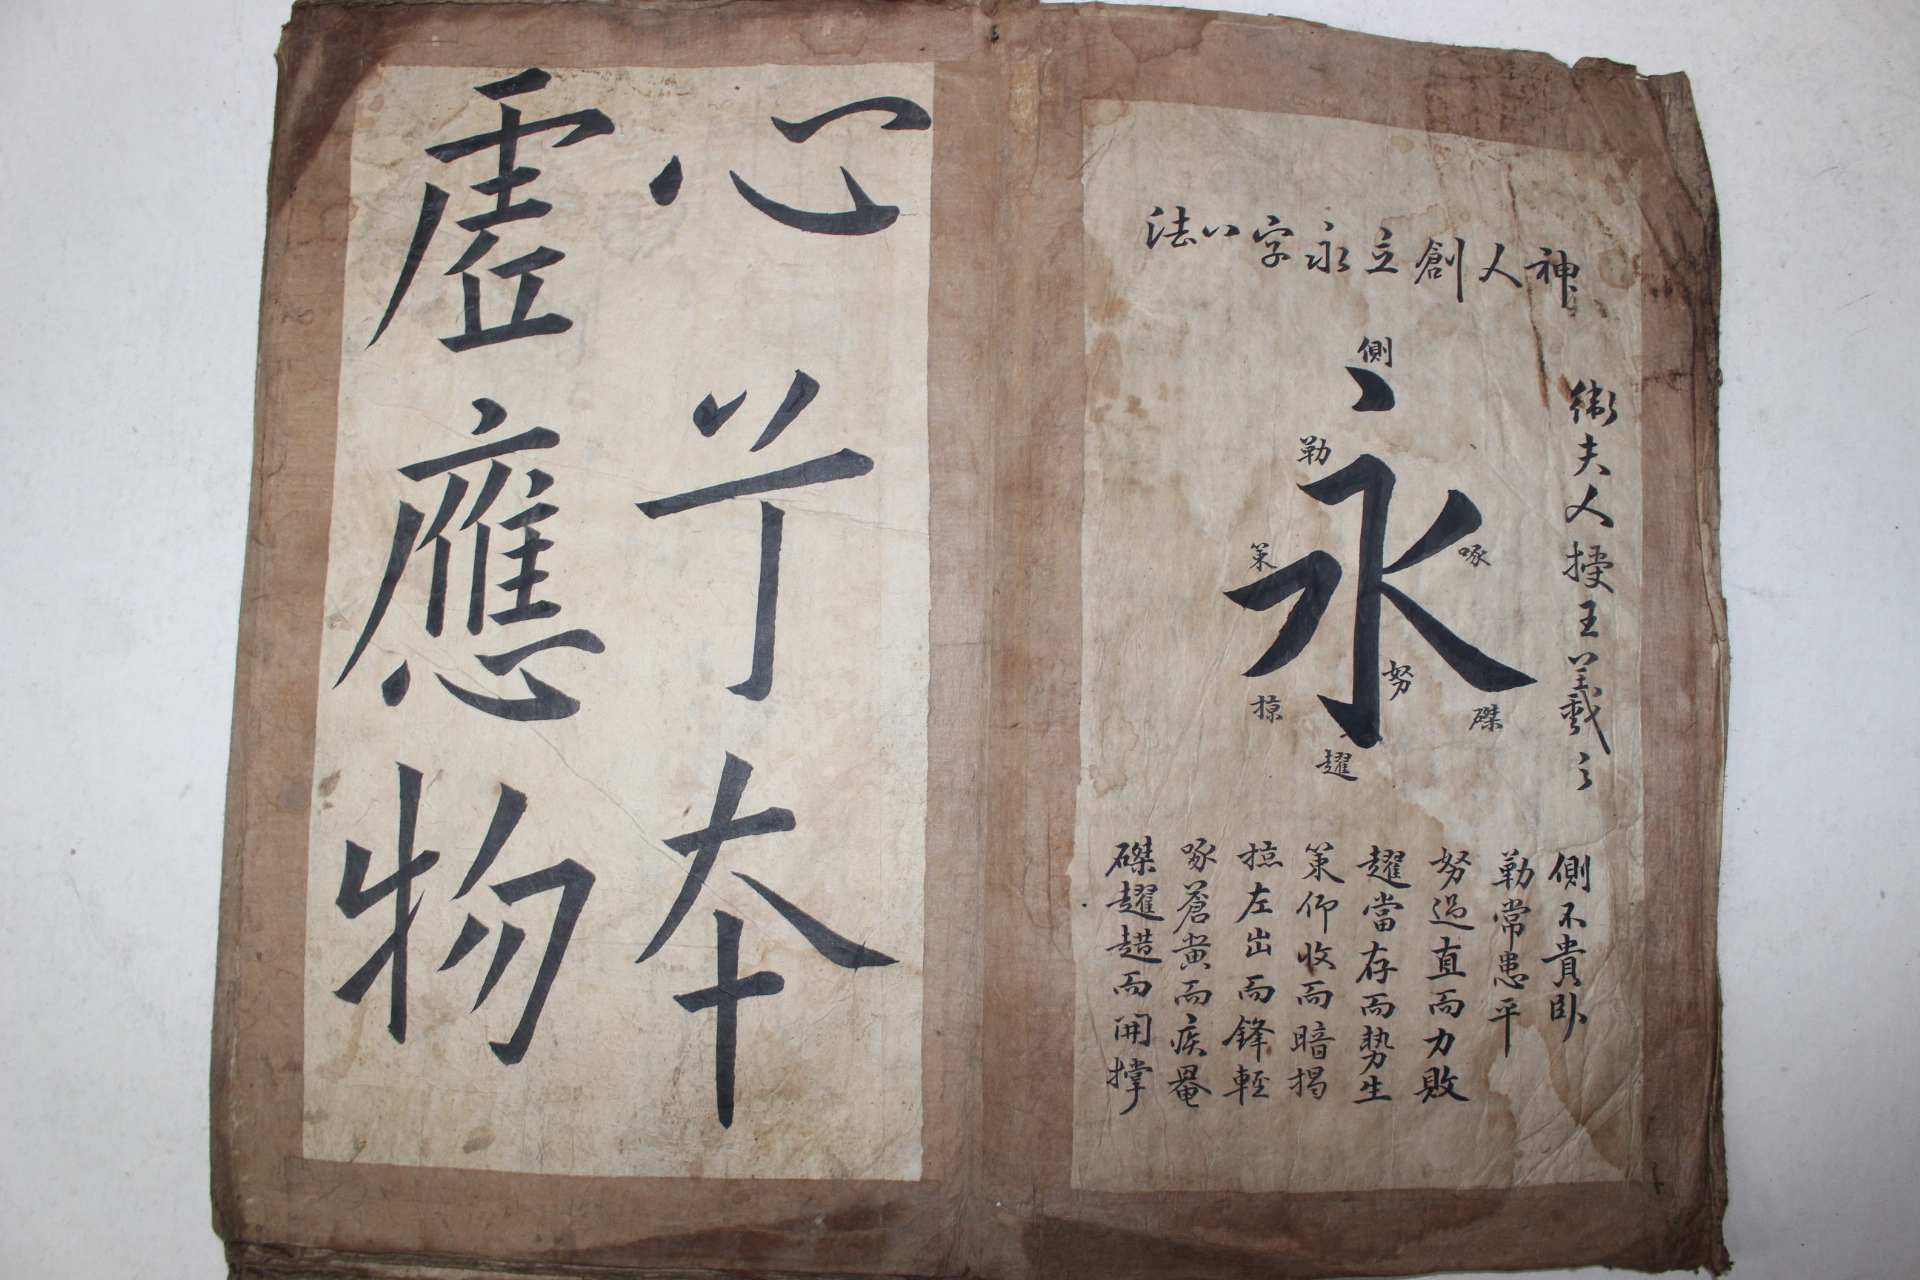 神人創立永字八法
衛夫人授王羲之
側
勒
啄
策
努
掠
磔
趯
側不貴臥
勒常患平
努過直而力敗
趯當存而勢生
策仰收而暗揭
掠左出而鋒輕
啄蒼黃而疾罨
磔趯趞而開撑
心兮本
虛應物